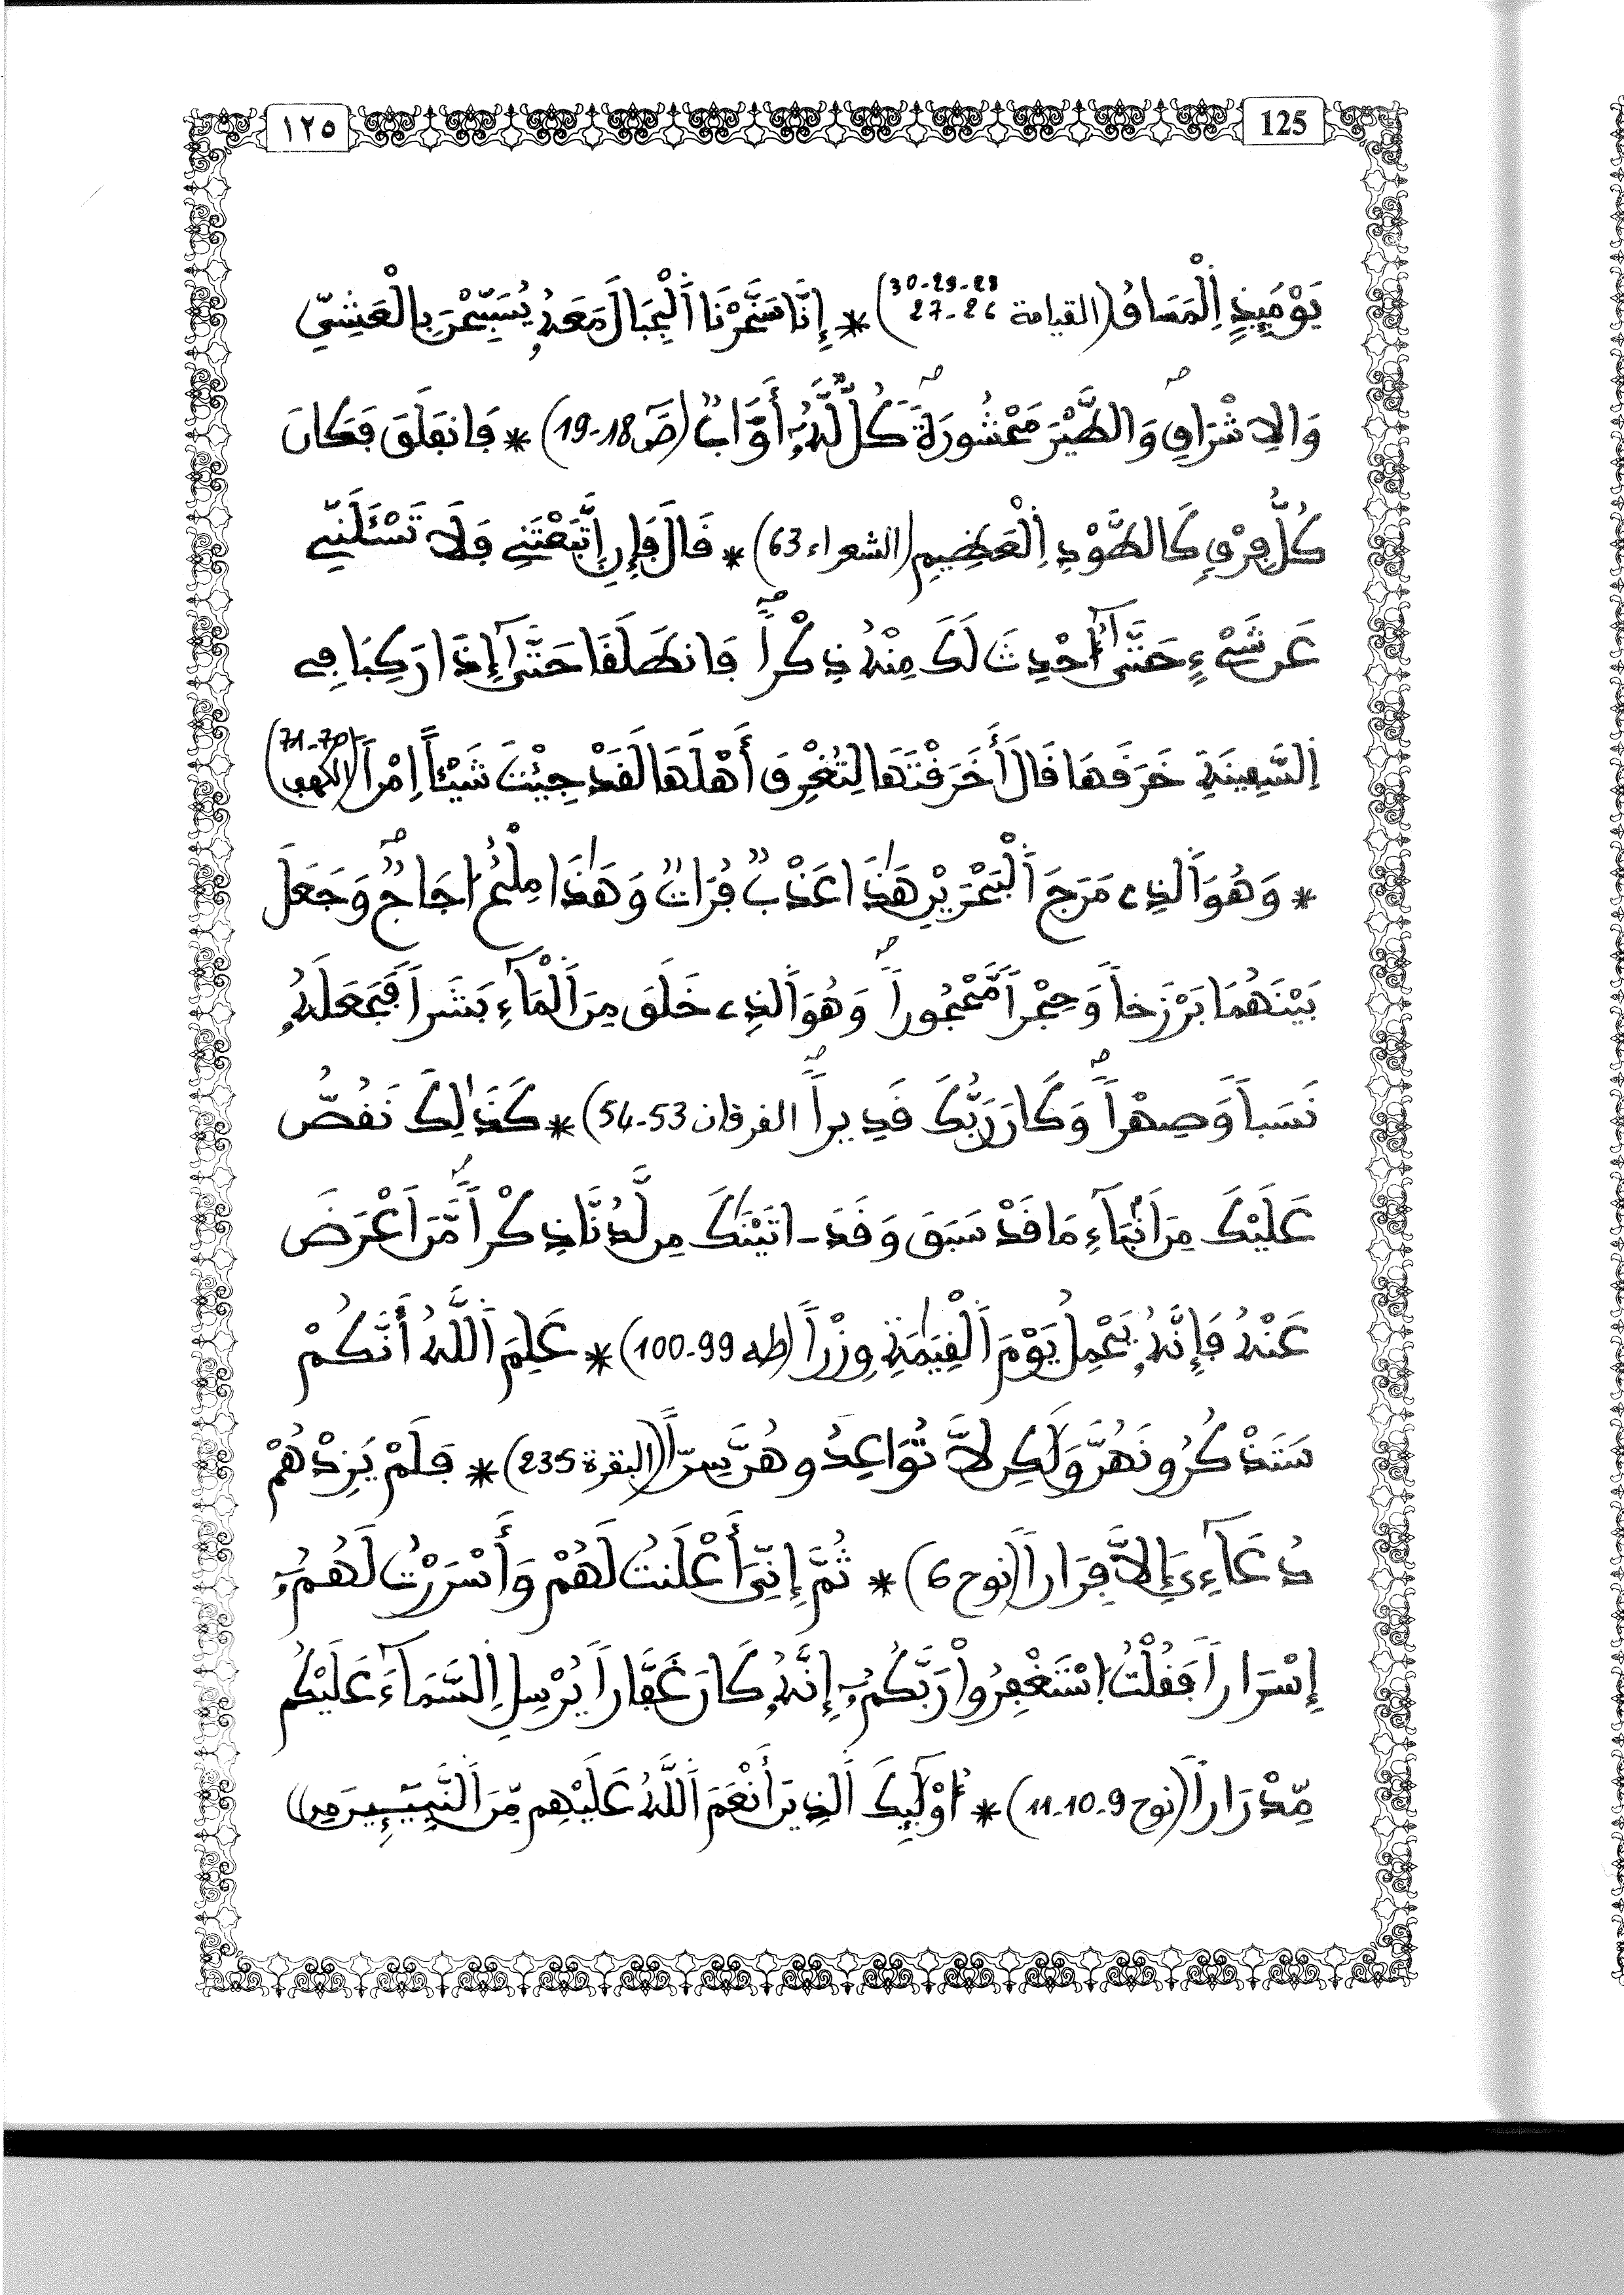 ١٢٥ 125
يَوْمَئِذٍ اِلْمَسَاقُ (القيامة 26-27-28-29-30) * إِنَّا سَخَّرْنَا اَلْجِبَالَ مَعَهُۥ يُسَبِّحْنَ بِالْعَشِيِّ
وَالِاشْرَاقِ وَالطَّيْرَ مَحْشُورَةٗ كُلّٞ لَّهُۥٓ أَوَّابٞ (صٓ 18-19) * فَانفَلَقَ فَكَانَ
كُلُّ فِرْقٖ كَالطَّوْدِ اِلْعَظِيمِ (الشعراء 63) * قَالَ فَإِنِ اِتَّبَعْتَنِے فَلَا تَسْـَٔلَنِّے
عَن شَےْءٍ حَتَّىٰٓ أُحْدِثَ لَكَ مِنْهُ ذِكْراٗ فَانطَلَقَا حَتَّىٰٓ إِذَا رَكِبَا فِے
اِلسَّفِينَةِ خَرَقَهَا قَالَ أَخَرَقْتَهَا لِتُغْرِقَ أَهْلَهَا لَقَدْ جِئْتَ شَيْـٔاً اِمْراٗ (الكهف 70-71)
* وَهُوَ اَلذِے مَرَجَ اَلْبَحْرَيْنِ هَٰذَا عَذْبٞ فُرَاتٞ وَهَٰذَا مِلْحٌ اُجَاجٞ وَجَعَلَ
بَيْنَهُمَا بَرْزَخاٗ وَحِجْراٗ مَّحْجُوراٗ وَهُوَ اَلذِے خَلَقَ مِنَ اَلْمَآءِ بَشَراٗ فَجَعَلَهُۥ
نَسَباٗ وَصِهْراٗ وَكَانَ رَبُّكَ قَدِيراٗ الفرقان 53-54) * كَذَٰلِكَ نَقُصُّ
عَلَيْكَ مِنَ اَنۢبَآءِ مَا قَدْ سَبَقَ وَقَدَ ـ اتَيْنَٰكَ مِن لَّدُنَّا ذِكْراٗ مَّنَ اَعْرَضَ
عَنْهُ فَإِنَّهُۥ يَحْمِلُ يَوْمَ اَلْقِيَٰمَةِ وِزْراٗ (طه 99-100) * عَلِمَ اَللَّهُ أَنَّكُمْ
سَتَذْكُرُونَهُنَّ وَلَٰكِن لَّا تُوَاعِدُوهُنَّ سِرّاٗ (البقرة 235) * فَلَمْ يَزِدْهُمْ
دُعَآءِےَ إِلَّا فِرَاراٗ (نوح 6) * ثُمَّ إِنِّيَ أَعْلَنتُ لَهُمْ وَأَسْرَرْتُ لَهُمُۥٓ
إِسْرَاراٗ فَقُلْتُ اُسْتَغْفِرُواْ رَبَّكُمُۥٓ إِنَّهُۥ كَانَ غَفَّاراٗ يُرْسِلِ اِلسَّمَآءَ عَلَيْكُم
مِّدْرَاراٗ (نوح 9-10-11) * أُوْلَٰٓئِكَ اَلذِينَ أَنْعَمَ اَللَّهُ عَلَيْهِم مِّنَ اَلنَّبِيٓـِٕينَ مِن